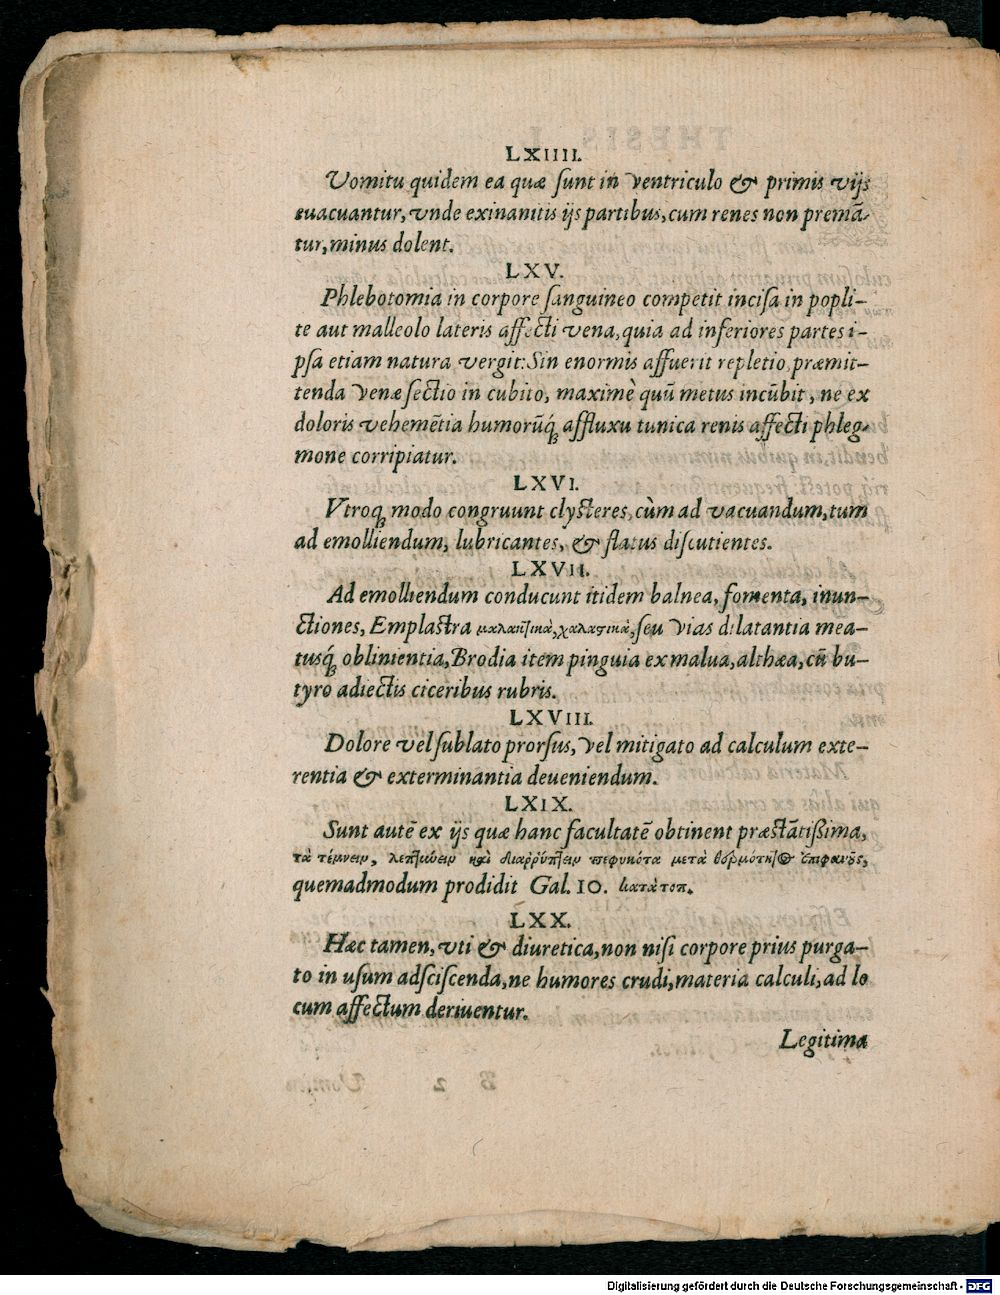 LXIIII.
Vomitu quidem ea quæ ſunt in ventriculo & primis vijs
euacuantur, vnde exinanitis ijs partibus, cum renes non premā-
tur, minus dolent.
LXV.
Phlebotomia in corpore ſanguineo competit inciſa in popli-
te aut malleolo lateris affecti vena, quia ad inferiores partes i-
pſa etiam natura vergit: Sin enormis affuerit repletio, præmit-
tenda venæ ſectio in cubito, maximè quū metus incūbit, ne ex
doloris vehemētia humorūq́ affluxu tunica renis affecti phleg-
mone corripiatur.
LXVI.
Vtroq modo congruunt clyſteres, cùm ad vacuandum, tum
ad emolliendum, lubricantes, & flatus diſcutientes.
LXVII.
Ad emolliendum conducunt itidem balnea, fomenta, inun-
ctiones, Emplaſtra μαλακτικὰ, χαλαστικὰ, ſeu vias dilatantia mea-
tusq́ oblinientia, Brodia item pinguia ex malua, althæa, cū bu-
tyro adiectis ciceribus rubris.
LXVIII.
Dolore vel ſublato prorſus, vel mitigato ad calculum exte-
rentia & exterminantia deueniendum.
LXIX.
Sunt autē ex ijs quæ hanc facultatē obtinent præſtātißima,
τὰ τέμνειν, λεπτύνειν καὶ διαῤῥύπτειν πεφυκότα μετὰ θερμότητος ἐπιφανοῦς,
quemadmodum prodidit Gal. 10. κατὰ τοπ.
LXX.
Hæc tamen, vti & diuretica, non niſi corpore prius purga-
to in uſum adſciſcenda, ne humores crudi, materia calculi, ad lo
cum affectum deriuentur.
Legitima
Digitalisierung gefördert durch die Deutsche Forschungsgemeinschaft - DFG